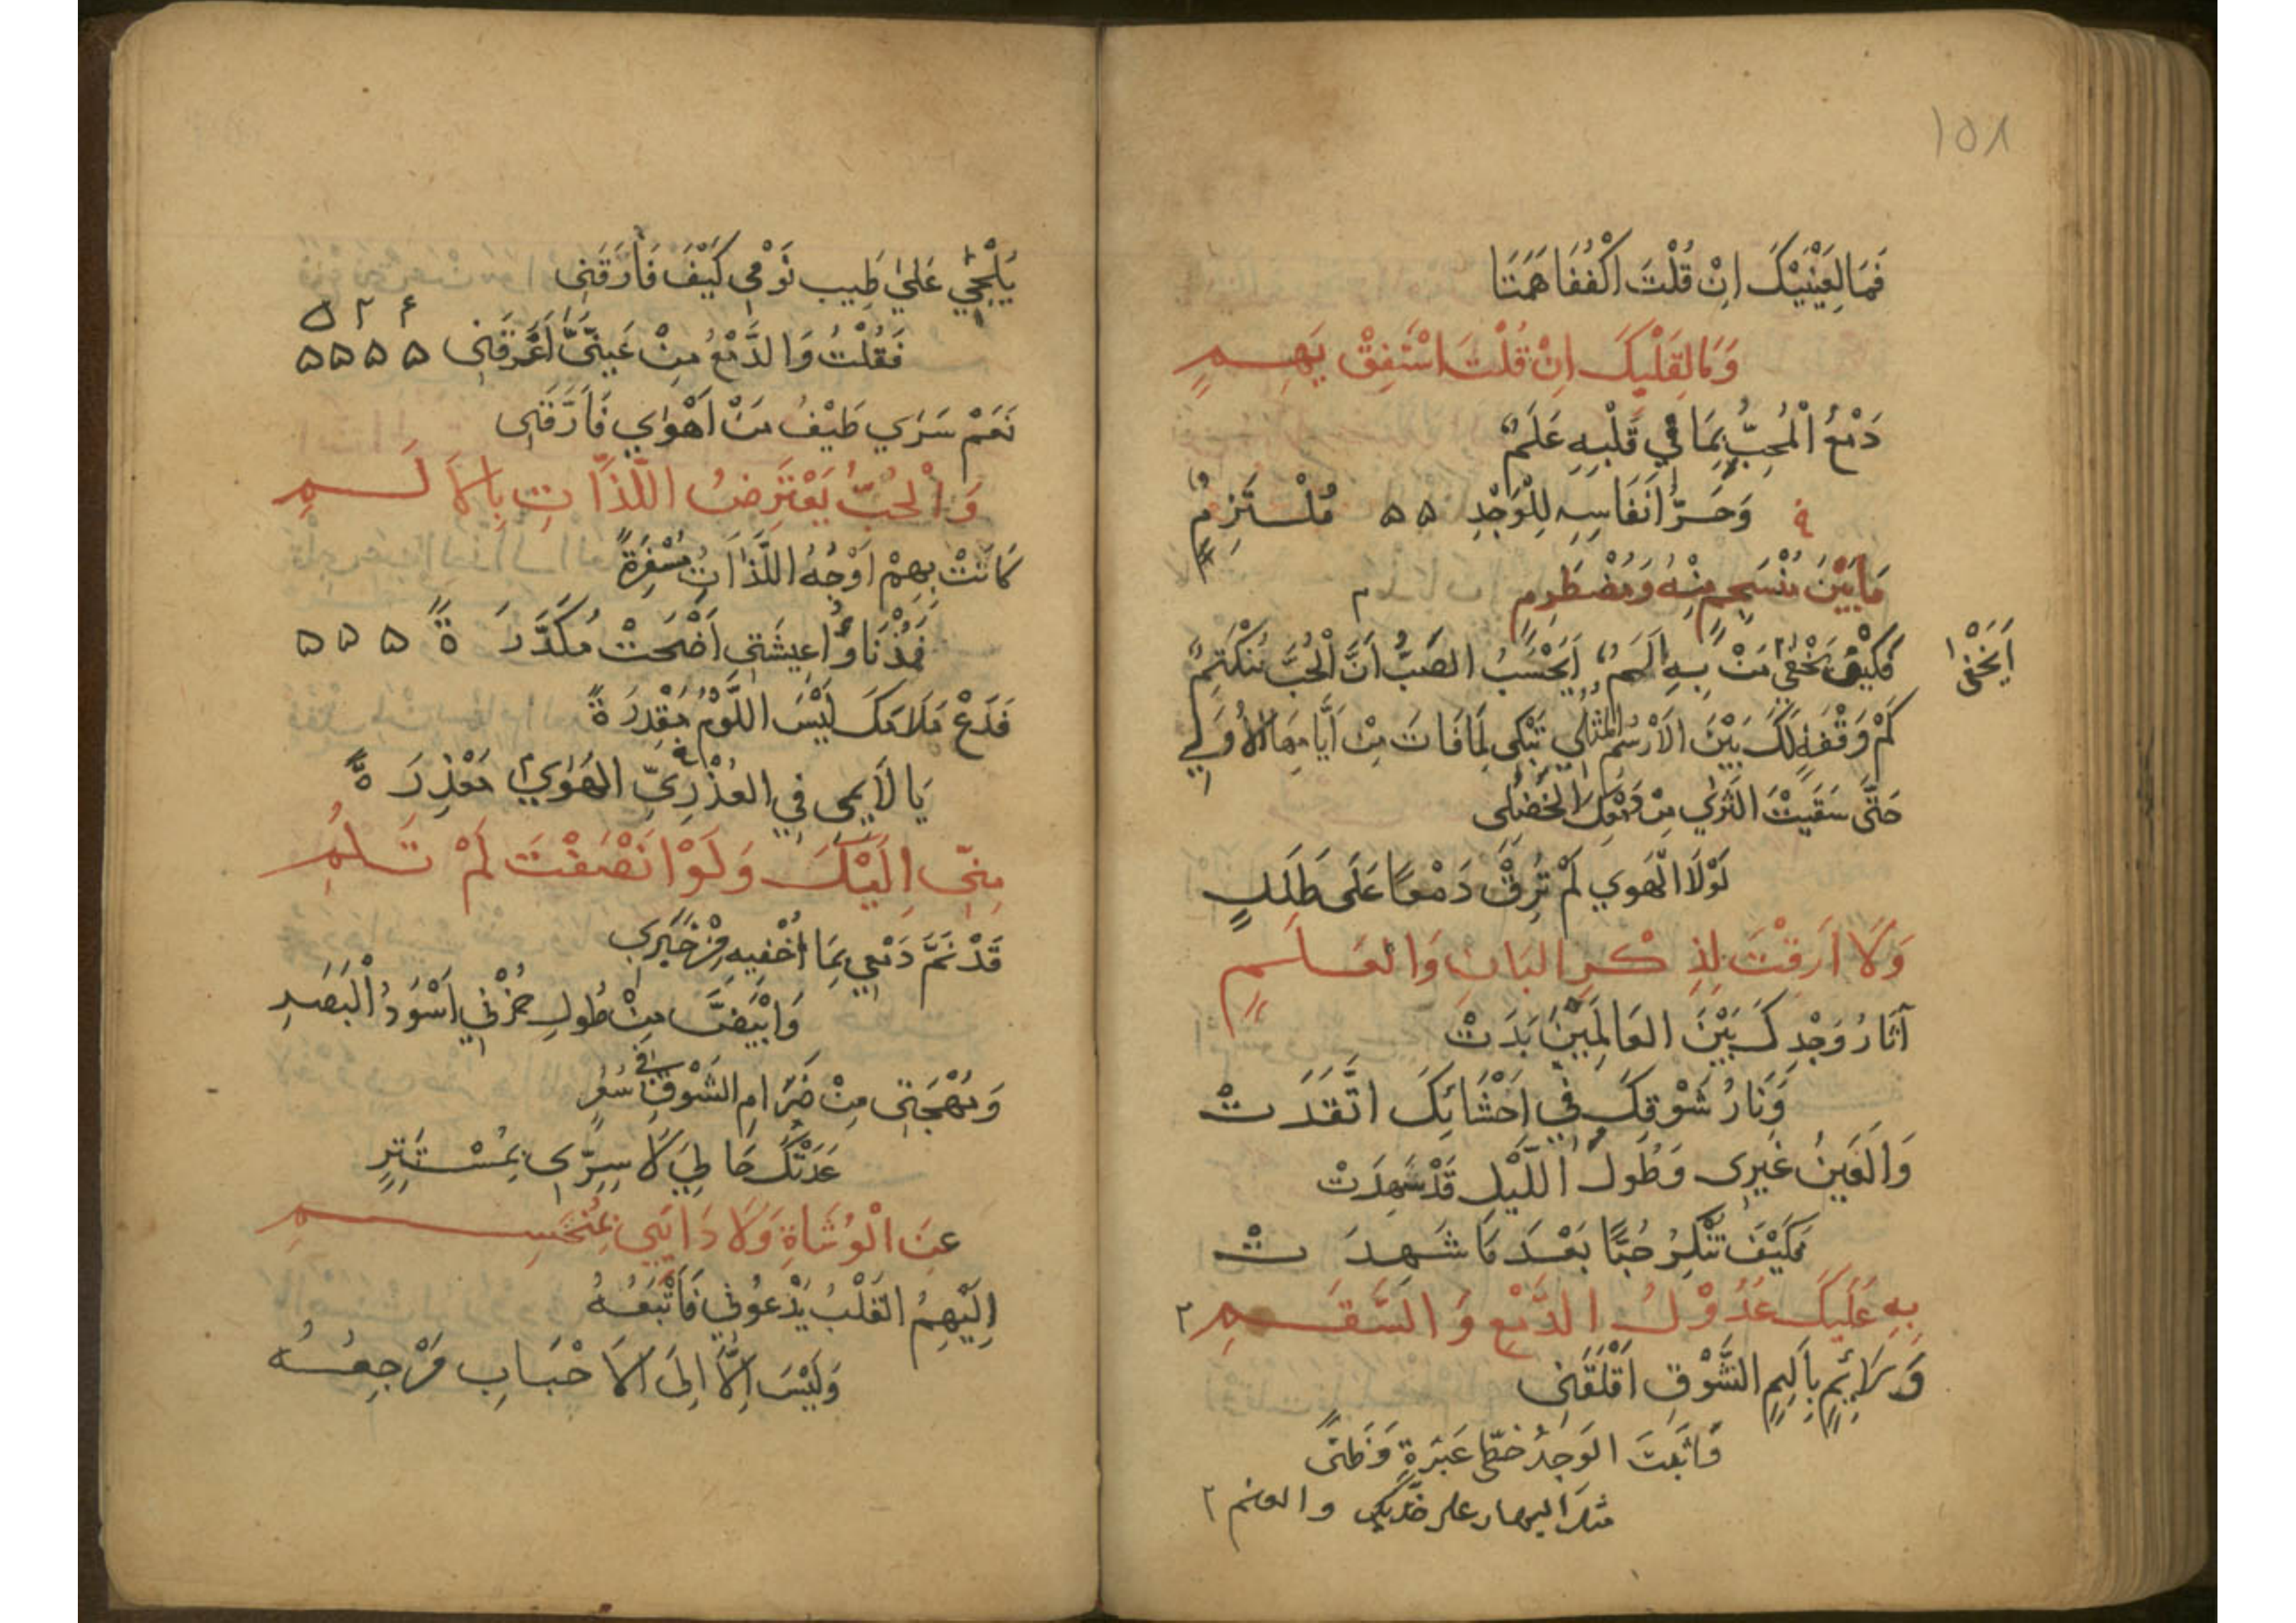 ١٥٨
فَمَا لِعَيْنَيْكَ اِنْ قُلْتَ اكْفُفَا هَمَتَا
وَمَا لِقَلْبِكَ اِنْ قُلْتَ اسْتَفِقْ يَهِمِ
دَمْعُ الْمُحِبِّ بِمَا فِي قَلْبِهِ عَلَمٌ
وَحَرُّ اَنْفَاسِهِ لِلْوَجْدِ ۵۵ مُلْتَزِمٌ
مَا بَيْنَ مُنْسَجِمٍ مِنْهُ وَمُضْطَرِمِ م
اَيَخْفٰى
فَكَيْفَ يَخْفٰى مَنْ بِهِ اَلَمٌ اَيَحْسَبُ الصَّبُّ اَنَّ الْحُبَّ مُنْكَتِمٌ
كَمْ وَقْفَةٍ لَكَ بَيْنَ الْاَرْسُمِ الْمُثُلِي تَبْكِي لِمَا فَاتَ مِنْ اَيَّامِهَا الْاُوَلِي
حَتّٰى سَقَيْتَ الثَّرٰي مِنْ دَمْعِكَ الْخَضِلِي
لَوْلَا الْهَوٰي لَمْ تُرِقْ دَمْعًا عَلَى طَلَلٍ
وَلَا اَرِقْتَ لِذِكْرِ الْبَانِ وَالْعَلَمِ
آثَارُ وَجْدِكَ بَيْنَ الْعَالَمِيْنَ بَدَتْ
وَنَارُ شَوْقِكَ فِي اَحْشَائِكَ اتَّقَدَتْ
وَالْعَيْنُ غَيْرِي وَطُولَ اللَّيْلِ قَدْ سَهِدَتْ
فَكَيْفَ تُنْكِرُ حُبًّا بَعْدَ مَا شَهِدَتْ
بِهِ عَلَيْكَ عُدُوْلُ الدَّمْعِ وَالسَّقَمِ ٢
وَلَائِمٍ بِاَلِيمِ الشَّوْقِ اَقْلَقَنِي
وَاَثْبَتَ الْوَجْدُ خَطَّيْ عَبْرَةٍ وَضَنًى
مثل البهار على خديك والعنم ٢
يَلْحِي عَلٰي طِيبِ نَوْمِي كَيْفَ فَارَقَنِي
فَقُلْتُ وَالدَّمْعُ مِنْ عَيْنَيَّ اَغْرَقَنِي ۵۵۵۵
نَعَمْ سَرٰي طَيْفُ مَنْ اَهْوٰي فَاَرَّقَنِي
وَالْحُبُّ يَعْتَرِضُ اللَّذَّاتِ بِالْاَلَمِ
كَانَتْ بِهِمْ اَوْجُهُ اللَّذَّاتِ مُسْفِرَةً
فَمُذْ نَاَوْا عِيشَتِي اَضْحَتْ مُكَدَّرَةً ۵۵۵
فَدَعْ مَلَامَكَ لَيْسَ اللَّوْمُ مَقْدِرَةً
يَا لَائِمِي فِي الْهَوٰي الْعُذْرِيِّ مَعْذِرَةً
مِنِّي اِلَيْكَ وَلَوْ اَنْصَفْتَ لَمْ تَلُمِ
قَدْ نَمَّ دَمْعِي بِمَا اُخْفِيهِ مِنْ خَبَرِي
وَابْيَضَّ مِنْ طُولِ حُزْنِي اَسْوَدُ الْبَصَرِ
وَمُهْجَتِي مِنْ ضِرَامِ الشَّوْقِ فِي سُعُرٍ
عَدَتْكَ حَالِيَ لَا سِرِّي بِمُسْتَتِرٍ
عَنِ الْوُشَاةِ وَلَا دَائِي بِمُنْحَسِمِ
اِلَيْهِمُ الْقَلْبُ يَدْعُونِي فَاَتْبَعُهُ
وَلَيْسَ اِلَّا اِلَى الْاَحْبَابِ مَرْجِعُهُ